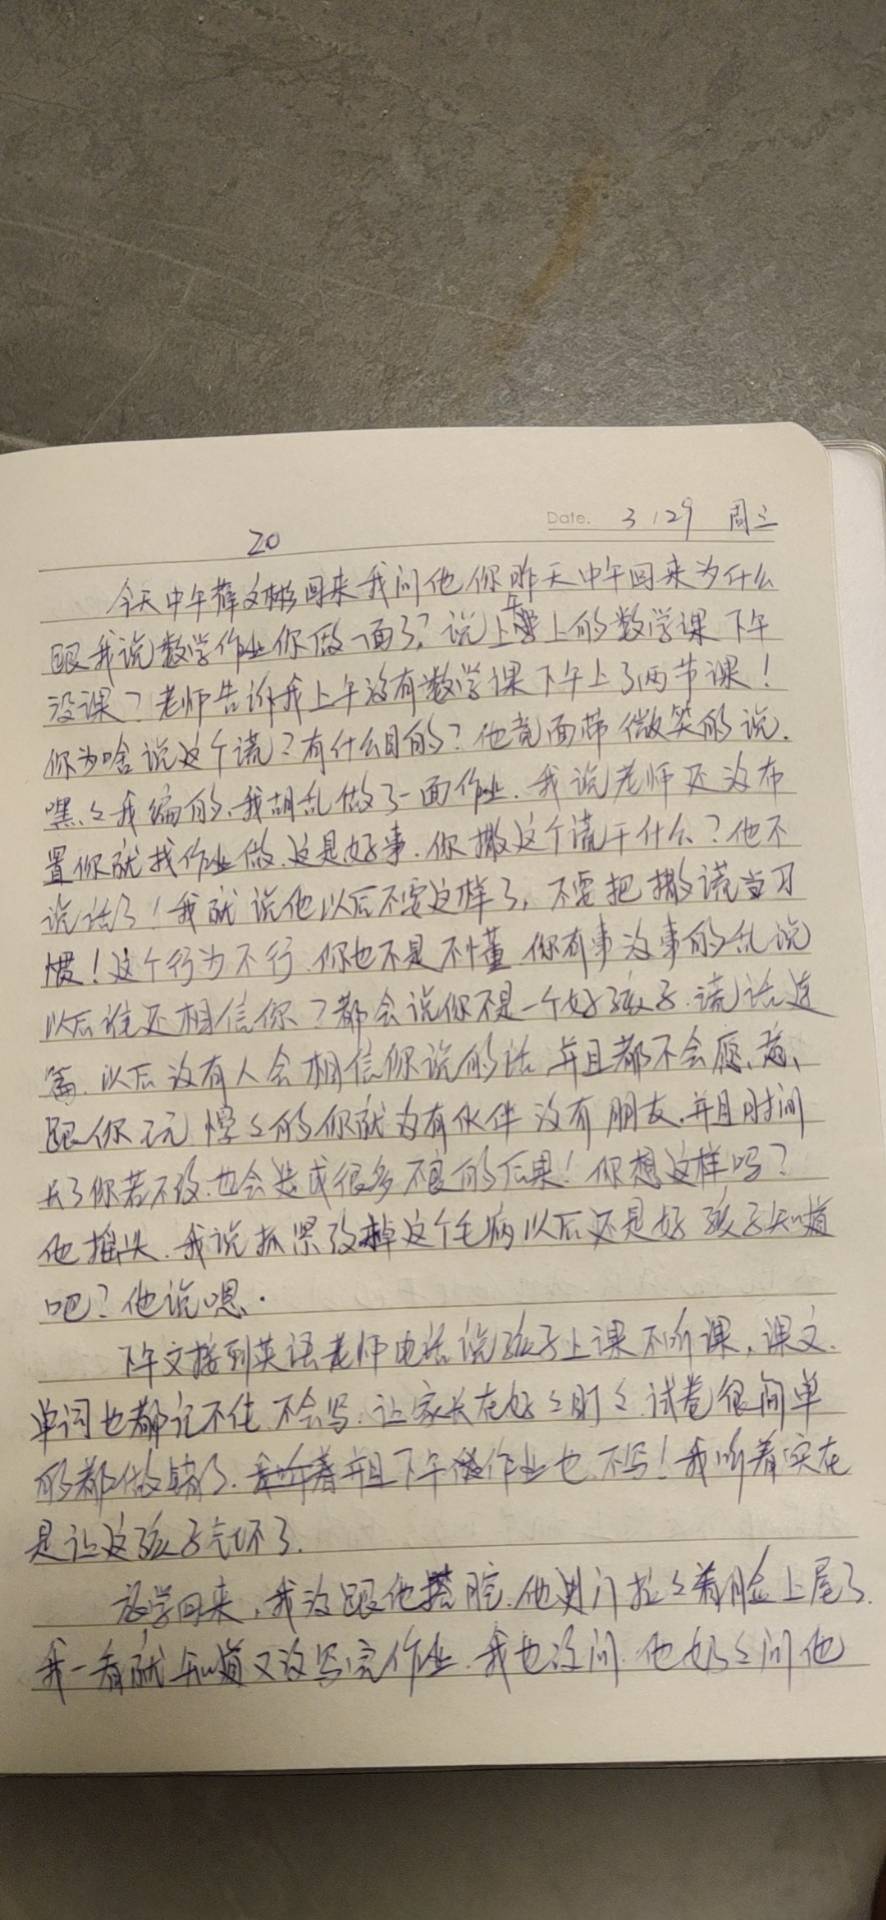 Date. 3/29 周三
20
今天中午薛文彬回来我问他你昨天中午回来为什么
跟我说数学作业你做一面了?说上午上的数学课下午
没课?老师告诉我上午没有数学课下午上了两节课!
你为啥说这个谎?有什么目的?他竟面带微笑的说.
嘿々我编的.我胡乱做了一面作业.我说老师还没布
置你就找作业做.这是好事.你撒这个谎干什么?他不
说话了!我就说他以后不要这样了,不要把撒谎当习
惯!这个行为不行.你也不是不懂.你有事没事的乱说
以后谁还相信你?都会说你不是一个好孩子.谎话连
篇.以后没有人会相信你说的话.并且都不会愿意、
跟你玩 慢々的你就没有伙伴 没有朋友.并且时间
长了你若不改.也会造成很多不良的后果!你想这样吗?
他摇头.我说抓紧改掉这个毛病以后还是好孩子知道
吧?他说嗯.
下午又接到英语老师电话说孩子上课不听课,课文.
单词也都记不住.不会写.让家长在好々盯々.试卷很简单
的都做错了.并且下午作业也不写!我听着实在
是让这孩子气坏了.
放学回来,我没跟他搭腔.他进门拉々着脸上尾了.
我一看就知道又没写完作业.我也没问.他奶々问他